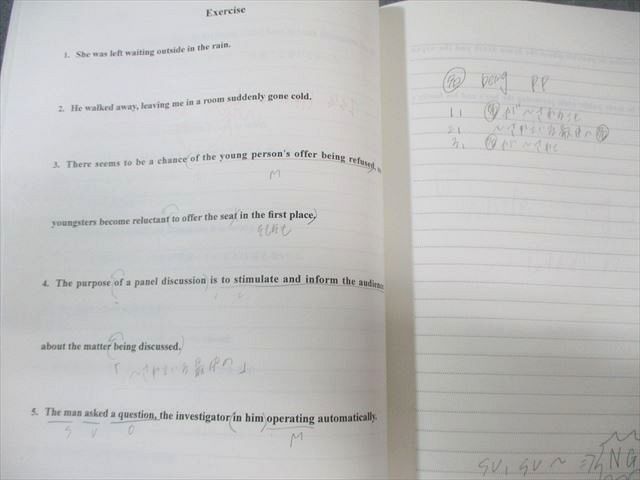 Exercise
1. She was left waiting outside in the rain.
2. He walked away, leaving me in a room suddenly gone cold.
3. There seems to be a chance of the young person's offer being refused,
M
youngsters become reluctant to offer the seat in the first place,
4. The purpose of a panel discussion is to stimulate and inform the audience
about the matter being discussed.
5. The man asked a question, the investigator in him operating automatically.
S V O M
名 being PP
1.
2.
3.
SV, SV ~ ⇒ NG